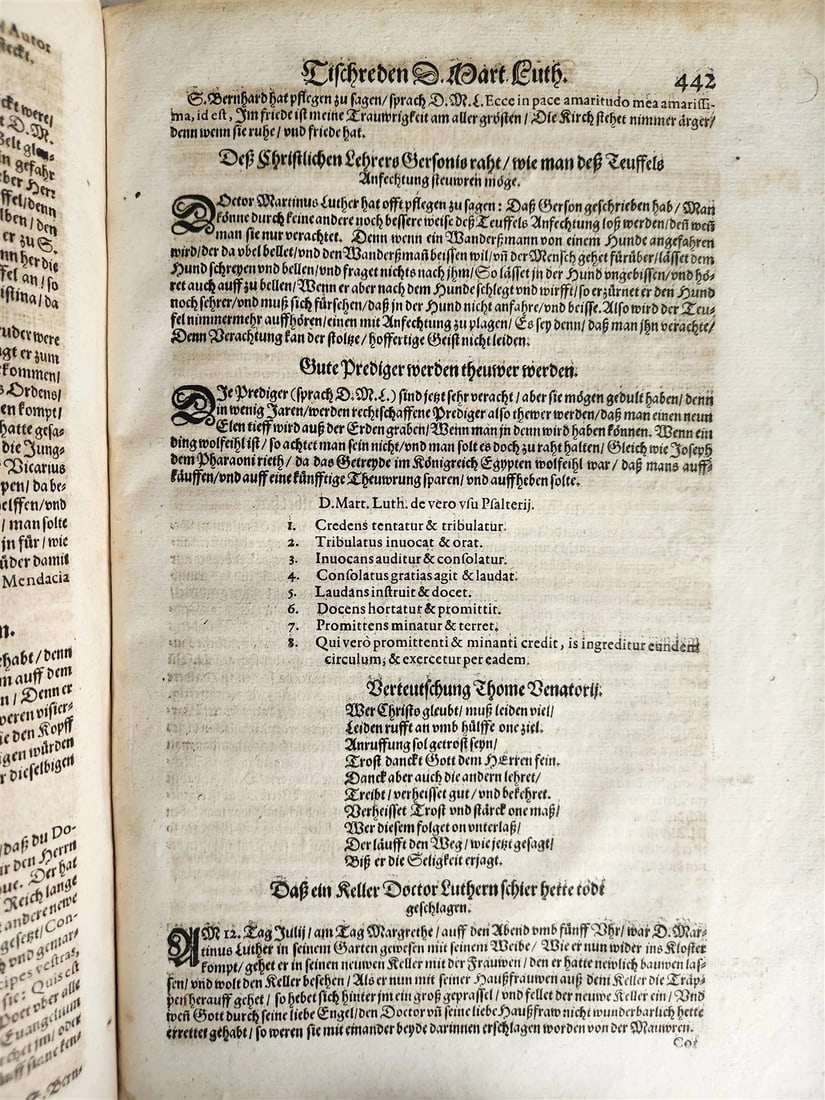 Autor
steckt.
D. M.
in gefahr
ber Herr
lben / den
er zu S.
nn her die
istina / da
ruder were
agt er zum
kommen /
s Ordens /
en kompt /
hatte gesa-
die Jung-
Vicarius
pen / da be-
elffen / vnd
/ man solte
jn für / wie
üder damit
Mendacia
n.
habt / denn
m auff dem
n / Denn er
weren visier-
ie den Kopff
gen würden
r dieselbigen
/ daß du Do-
ir den Herrn
ue. Der hat
Reich lange
andere newe
gesetzt / Con-
vnd gemar-
cipes vestras,
sie: Quis est
Poet vber alle
Euangelium
S. Bern-
Tischreden D. Mart. Luth. 442
S. Bernhard hat pflegen zu sagen / sprach D. M. L. Ecce in pace amaritudo mea amarissi-
ma, id est, Im friede ist meine Trauwrigkeit am aller grösten / Die Kirch stehet nimmer ärger /
denn wenn sie ruhe / vnd friede hat.
Deß Christlichen Lehrers Gersonis raht / wie man deß Teuffels
Anfechtung steuwren möge.
DOctor Martinus Luther hat offt pflegen zu sagen: Daß Gerson geschrieben hab / Man
könne durch keine andere noch bessere weise deß Teuffels Anfechtung loß werden / deñ weñ
man sie nur verachtet. Denn wenn ein Wanderßmann von einem Hunde angefahren
wird / der da vbel bellet / vnd den Wanderßmañ beissen wil / vñ der Mensch gehet fürüber / lässet dem
Hund schreyen vnd bellen / vnd fraget nichts nach jhm / So lässet jn der Hund vngebissen / vnd hö-
ret auch auff zu bellen / Wenn er aber nach dem Hunde schlegt vnd wirfft / so erzürnet er den Hund
noch sehrer / vnd muß sich fürsehen / daß jn der Hund nicht anfahre / vnd beisse. Also wird der Teu-
fel nimmermehr auffhören / einen mit Anfechtung zu plagen / Es sey denn / daß man jhn verachte /
Denn Verachtung kan der stoltze / hoffertige Geist nicht leiden.
Gute Prediger werden theuwer werden.
DIe Prediger (sprach D. M. L.) sind jetzt sehr veracht / aber sie mögen gedult haben / denn
in wenig Jaren / werden rechtschaffene Prediger also thewer werden / daß man einen neun
Elen tieff wird auß der Erden graben / Wenn man jn denn wird haben können. Wenn ein
ding wolfeihl ist / so achtet man sein nicht / vnd man solt es doch zu raht halten / Gleich wie Joseph
dem Pharaoni rieth / da das Getreyde im Königreich Egypten wolfeihl war / daß mans auff-
käuffen / vnd auff eine künfftige Theuwrung sparen / vnd auffheben solte.
D. Mart. Luth. de vero vsu Psalterij.
1. Credens tentatur & tribulatur.
2. Tribulatus inuocat & orat.
3. Inuocans auditur & consolatur.
4. Consolatus gratias agit & laudat.
5. Laudans instruit & docet.
6. Docens hortatur & promittit.
7. Promittens minatur & terret.
8. Qui verò promittenti & minanti credit, is ingreditur eundem
circulum, & exercetur per eadem.
Verteutschung Thome Venatorij.
Wer Christo gleubt / muß leiden viel /
Leiden rufft an vmb hülffe one ziel.
Anruffung sol getrost seyn /
Trost danckt Gott dem HErren fein.
Danck aber auch die andern lehret /
Treibt / verheisset gut / vnd bekehret.
Verheisset Trost vnd stärck one maß /
Wer diesem folget on vnterlaß /
Der läufft den Weg / wie jetzt gesagt /
Biß er die Seligkeit erjagt.
Daß ein Keller Doctor Luthern schier hette todt
geschlagen.
AM 12. Tag Julij / am Tag Margrethe / auff den Abend vmb fünff Vhr / war D. Mar-
tinus Luther in seinem Garten gewesen mit seinem Weibe / Wie er nun wider ins Kloster
kompt / gehet er in seinen neuwen Keller mit der Frauwen / den er hatte newlich bauwen las-
sen / vnd wolt den Keller besehen / Als er nun mit seiner Haußfrauwen auß dem Keller die Träp-
pen herauff gehet / so hebet sich hinter jm ein groß geprassel / vnd fellet der neuwe Keller ein / Vnd
weñ Gott durch seine liebe Engel / den Doctor vñ seine liebe Haußfraw nicht wunderbarlich hette
errettet gehabt / so weren sie mit einander beyde darinnen erschlagen worden von der Mauwren.